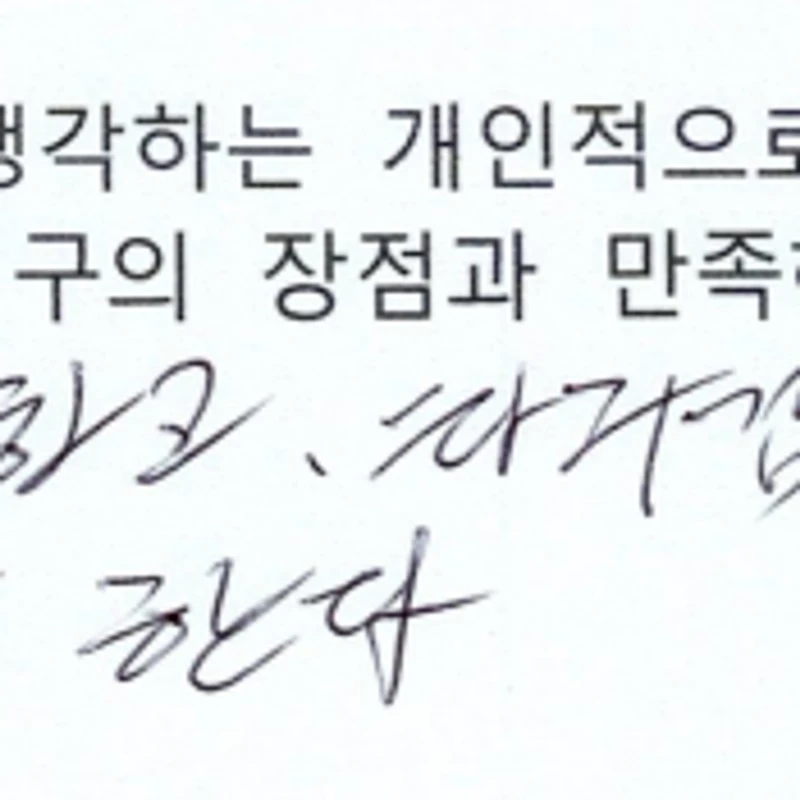 생각하는 개인적으로
구의 장점과 만족
하고, 따라
한다